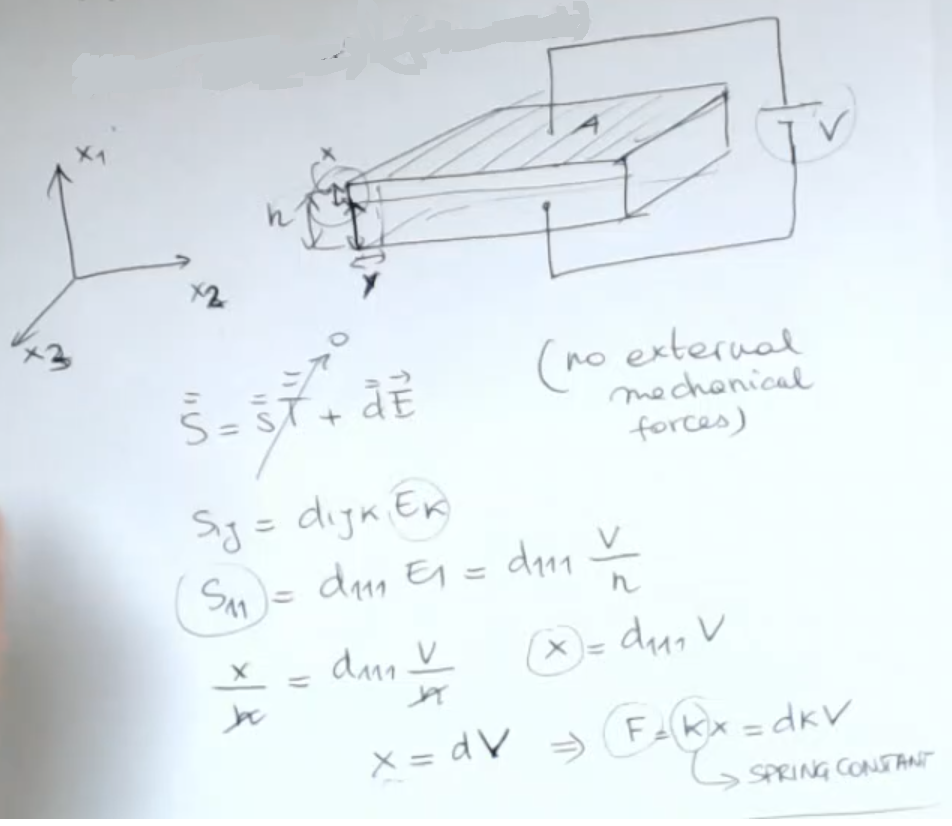 A
V
x
h
y
x₁
x₂
x₃
0
S̿ = s̿T̿ + d̿E⃗
(no external
mechanical
forces)
Sij = dijk Ek
S₁₁ = d₁₁₁ E₁ = d₁₁₁ V/h
x/h = d₁₁₁ V/h
x = d₁₁₁ V
x = dV ⇒ F = kx = dkV
SPRING CONSTANT